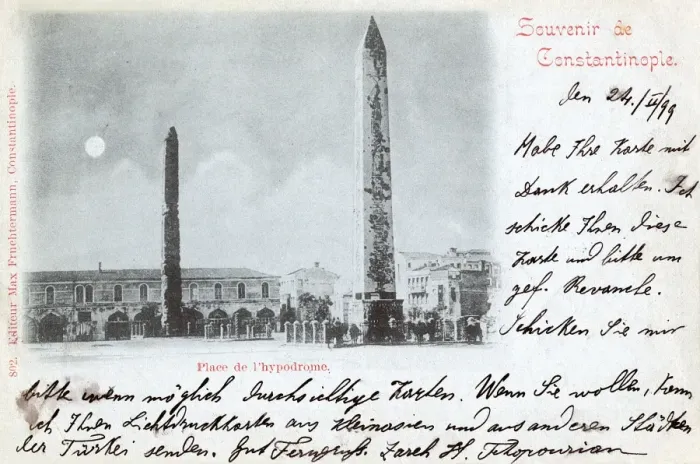 Souvenir de
Constantinople.
den 24./II/99
Habe Ihre Karte mit
Dank erhalten. Ich
schicke Ihnen diese
Karte und bitte um
gef. Revanche.
Schicken Sie mir
bitte wenn möglich durchsichtige Karten. Wenn Sie wollen, kann
ich Ihnen Lichtdruckkarten aus Kleinasien und aus anderen Städten
der Türkei senden. Gut Ferngruß. Zareh H.
Place de l'hypodrome.
802. Editeur Max Fruchtermann, Constantinople.